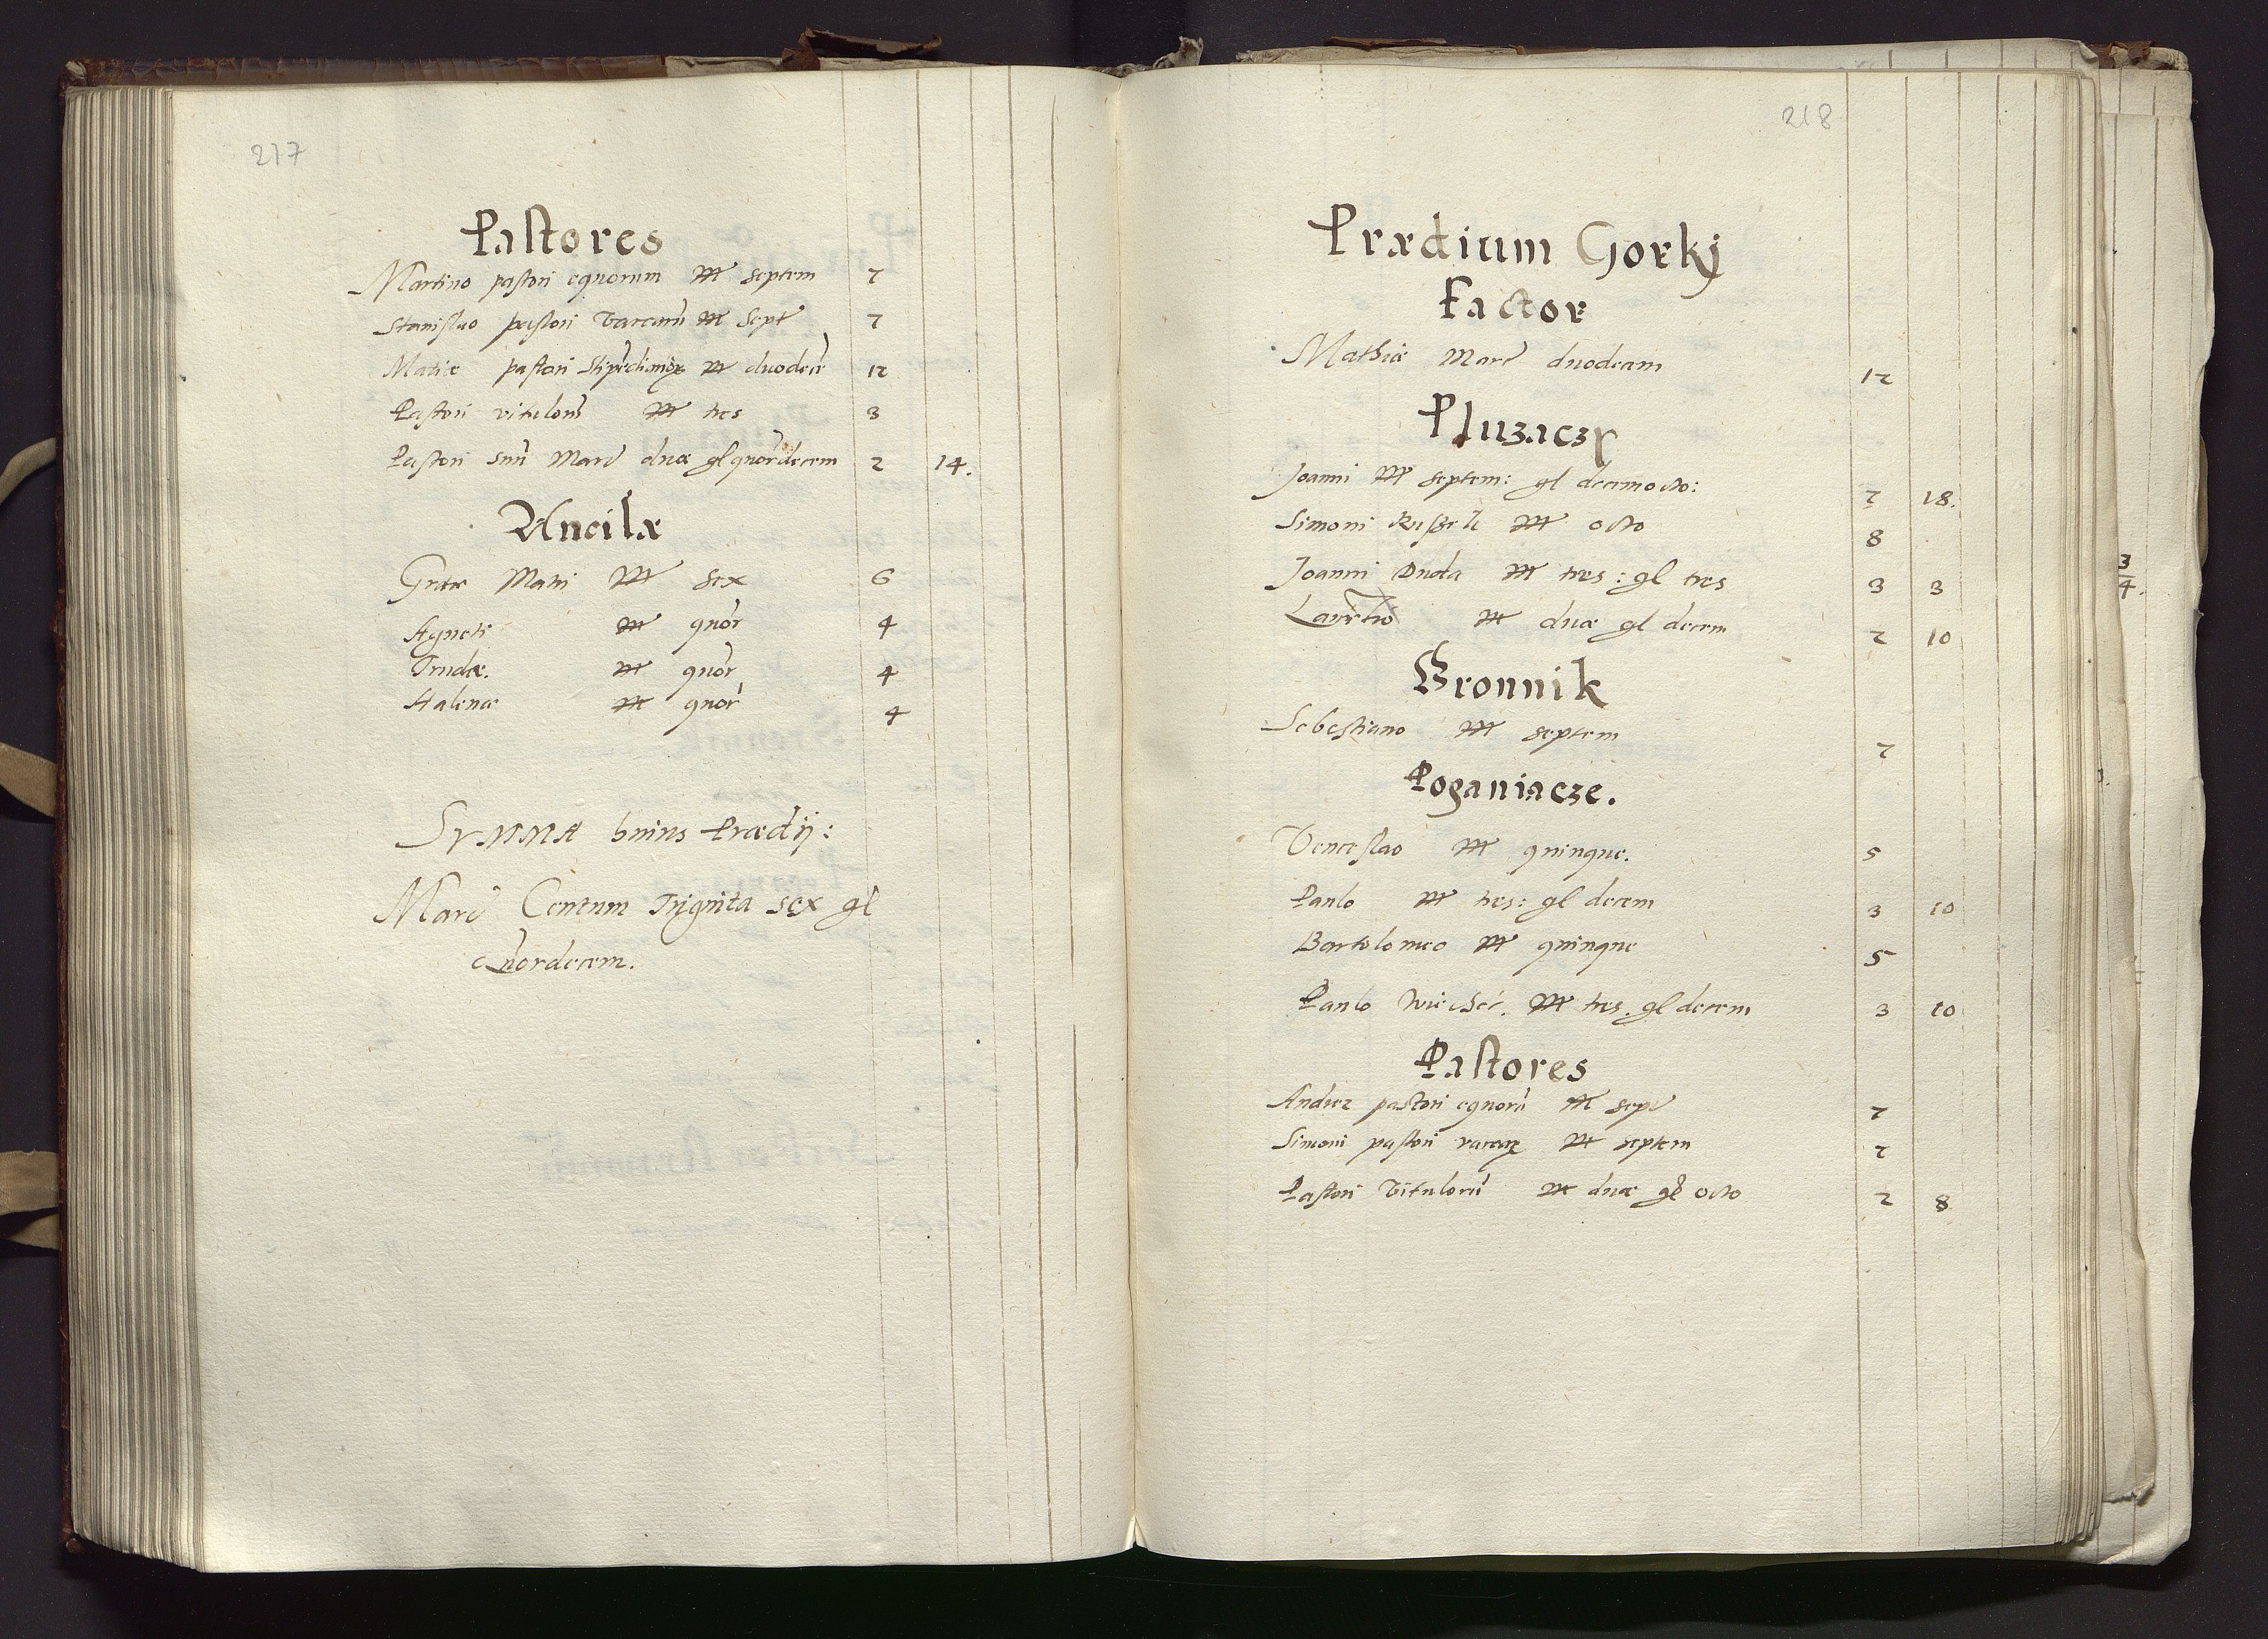 217
Pastores
Martino pastori equorum M septem 7
Stanislao pastori Vaccarũ M Sept 7
Matiæ pastori M duodecĩ 12
Pastori vitulorũ M tres 3
Pastori suũ Marc duæ gl quordecem 2 14.
Ancilæ
Matri M sex 6
Agneti M quor 4
Trudæ. M quor 4
Halenæ M quor 4
SVMMA huius Prædij:
Marc Centum Trignita sex gl
Quordecem.
218
Prædium Gorkj
Factor
Mathiæ Marc duodecim 12
Pluzaczy
Joanni M septem: gl decemocto: 7 18.
Simoni M octo 8
Joanni Duda M tres: gl tres 3 3
Laurẽtio M duæ gl decem 2 10
Gronnik
Sebestiano M septem 7
Poganiacze.
Venceslao M quinque. 5
Paulo M tres: gl decem 3 10
Bartolomeo M quinque 5
Paulo M tres. gl decem 3 10
Pastores
Andreæ pastori equorũ M sept 7
Simoni pastori vaccarũ M septem 7
Pastori Vitulorũ M duæ gl octo 2 8
3
4.